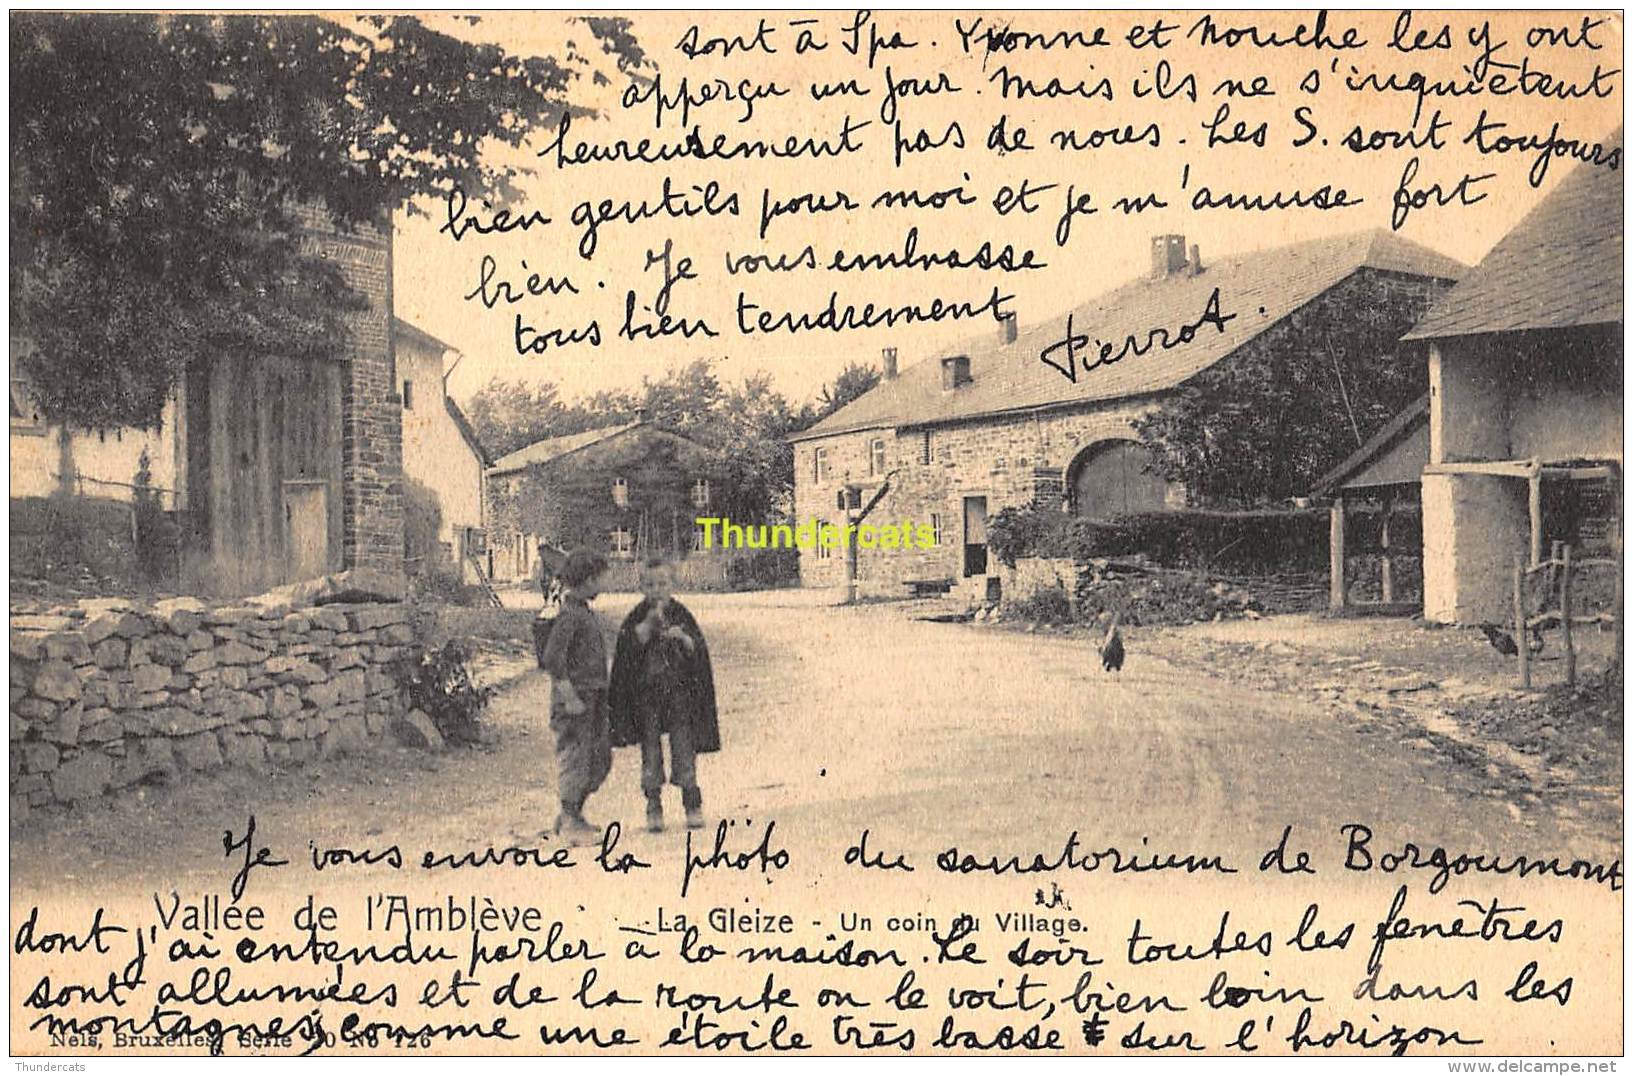 sont à Spa. Yvonne et Nouche les y ont
apperçu un jour. Mais ils ne s'inquiètent
heureusement pas de nous. Les S. sont toujours
bien gentils pour moi et je m'amuse fort
bien. Je vous embrasse
tous bien tendrement
Pierrot.
Thundercats
Je vous envoie la photo du sanatorium de Borgoumont
Vallée de l'Amblève - La Gleize - Un coin du Village.
dont j'ai entendu parler à la maison. Le soir toutes les fenêtres
sont allumées et de la route on le voit, bien loin dans les
montagnes, comme une étoile très basse sur l'horizon.
Nels, Bruxelles, Série 10 No 126
Thundercats
http://www.delcampe.net